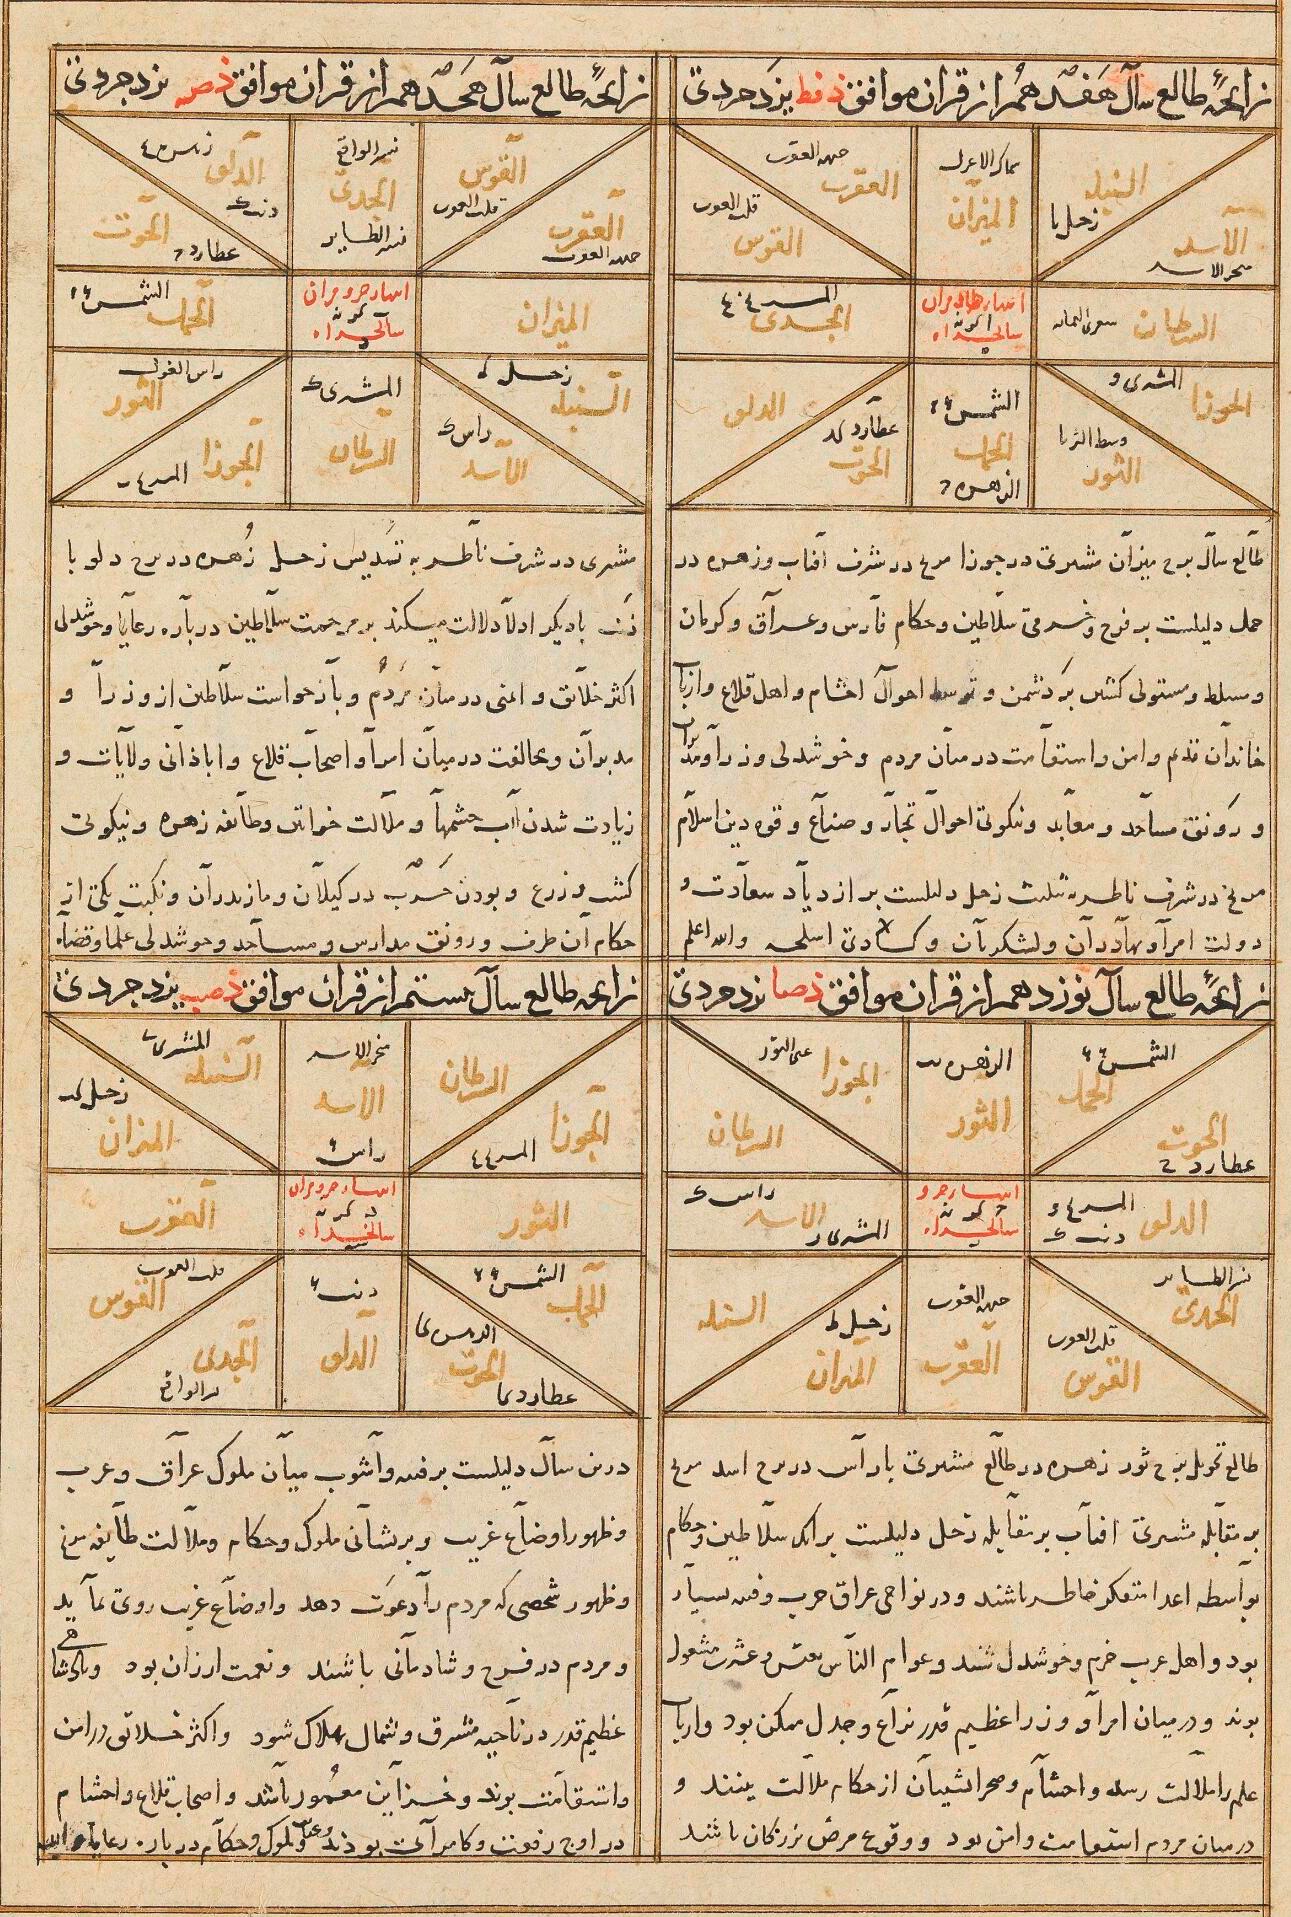 زایجهٔ طالع سال هفدهم از قران موافق ذفط یزدجردی
السنبله
زحل یا
الاسد
نحر الاسد
سماک الاعزل
المیزان
جبهه العقرب
العقرب
قلب العقرب
القوس
السرطان
سالخداه
الجدی
الجوزا
المشتری و
وسط الثریا
الثور
الشمس
الحمل
الزهره
الدلو
عطارد کد
الحوت
طالع سال برج میزان مشتری در جوزا مریخ در شرف آفتاب وزهره در
حمل دلیلست بر فرح وخرمی سلاطین وحکام فارس وعراق وکرمان
ومسلط ومستولی کشتن بر دشمن وتوسط احوال احشام واهل قلاع وارباب
خاندان قدیم وامن واستقامت در میان مردم وخوشدلی وزرا ومدبران
ورونق مساجد ومعابد ونیکوئی احوال تجار وصناع وقوه دین اسلام
مریخ در شرف ناظر به تثلیث زحل دلیلست بر ازدیاد سعادت و
دولت امرا وبهادران ولشکریان وکسادی اسلحه والله اعلم
زایجه طالع سال هجدهم از قران موافق ذص یزدجردی
القوس
قلب العقرب
العقرب
جبهه العقرب
نسر الواقع
الجدی
نسر الطایر
الدلو
زهره
ذنب
الحوت
عطارد
المیزان
سالخداه
الحمل
الشمس
زحل ط
السنبله
راس
الاسد
المشتری
السرطان
راس الغول
الثور
الجوزا
مشتری در شرف ناظر به تسدیس زحل زهره در برج دلو با
ذنب با دیگر ادلا دلالت میکند بر مرحمت سلاطین در باره رعایا وخوشدلی
اکثر خلائق وامنی در میان مردم وبازخواست سلاطین از وزرا و
مدبران ومخالفت در میان امرا واصحاب قلاع وابادانی ولایات و
زیادت شدن آب چشمها وملالت خواتین وطائفه زهره ونیکوئی
کشت وزرع وبودن حرب در کیلان ومازندران ونکبت یکی از
حکام آن طرف ورونق مدارس ومساجد وخوشدلی علما وقضاة
زایجهٔ طالع سال نوزدهم از قران موافق ذصا یزدجردی
الشمس
الحمل
الحوت
عطارد
الزهره
الثور
الجوزا
عین الثور
السرطان
الدلو
ذنب
سالخداه
راس
الاسد
المشتری
نسر الطایر
الجدی
قلب العقرب
القوس
جبهه العقرب
العقرب
السنبله
زحل ط
المیزان
طالع تحویل برج ثور زهره در طالع مشتری با راس در برج اسد مریخ
بر مقابله مشتری افتاب بر مقابله زحل دلیلست بر انکه سلاطین وحکام
بواسطه اعدا متفکر خاطر باشند ودر نواحی عراق حرب وفتنه بسیار
بود واهل عرب خرم وخوشدل شند وعوام الناس بعیش وعشرت مشغول
بوند ودر میان امرا و وزرا عظیم قدر نزاع وجدل ممکن بود وارباب
علم را ملالت رسد واحشام وصحرانشینان از حکام ملالت بینند و
در میان مردم استقامت وامن بود ووقوع مرض بزرکان باشد
زایجه طالع سال بیستم از قران موافق ذصب یزدجردی
السرطان
الجوزا
نحر الاسد
الاسد
راس
المشتری
السنبله
زحل
المیزان
الثور
سالخداه
العقرب
الشمس
الحمل
الحوت
عطارد
ذنب
الدلو
قلب العقرب
القوس
الجدی
نسر الواقع
درین سال دلیلست بر فتنه وآشوب میان ملوک عراق وعرب
وظهور اوضاع غریب وپریشانی ملوک وحکام وملالت طایفه مریخ
وظهور شخصی که مردم را دعوت دهد واوضاع غریب روی نماید
ومردم در فرح وشادمانی باشند ونعمت ارزان بود وپادشاهی
عظیم قدر در ناحیه مشرق وشمال هلاک شود واکثر خلائق در امن
واستقامت بوند وخزاین معمور باشد واصحاب قلاع واحشام
در اوج رفعت وکامرانی بوند وملوک وحکام در باره رعایا